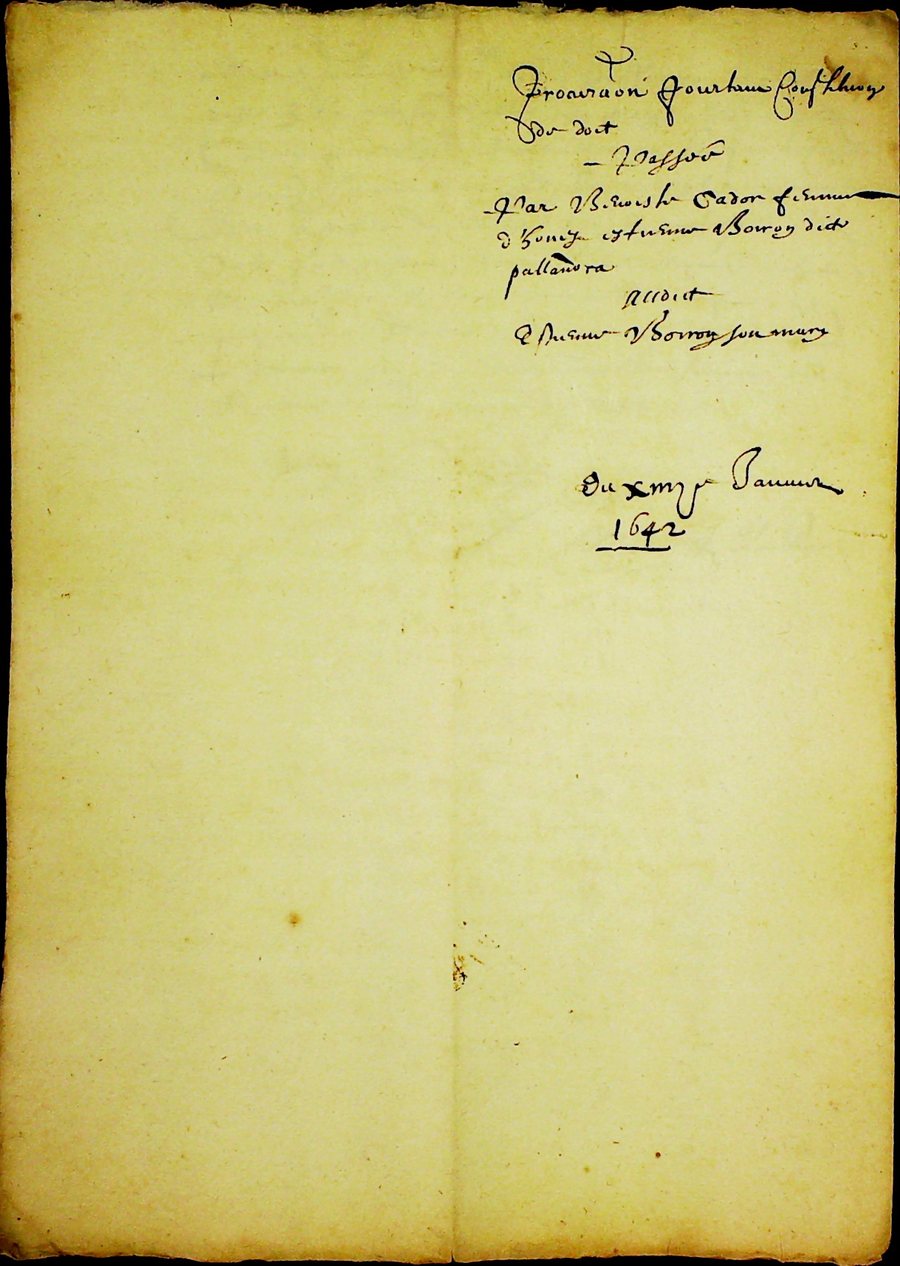 Procura͠on portant Constituon
de doct
Passée
Par Benoiste Cador femme
d'hones estienne Boiron dict
pallandra
Audict
Estienne Boiron son mary
Du xiiije Januier
1642